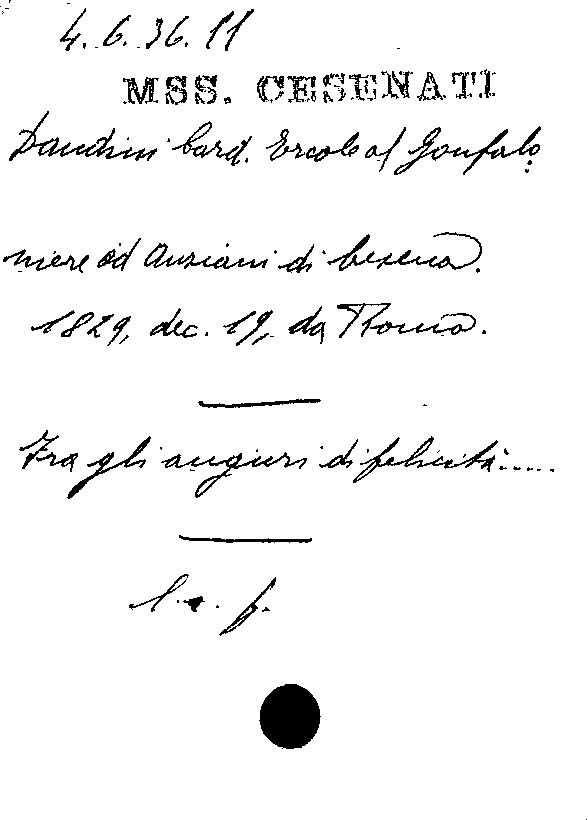 4.6.36.11
MSS. CESENATI
Dandini Card. Ercole al Gonfalo=
niere ed Anziani di Cesena.
1829, dec. 19, da Roma.
Fra gli auguri di felicità.....
l. a. f.